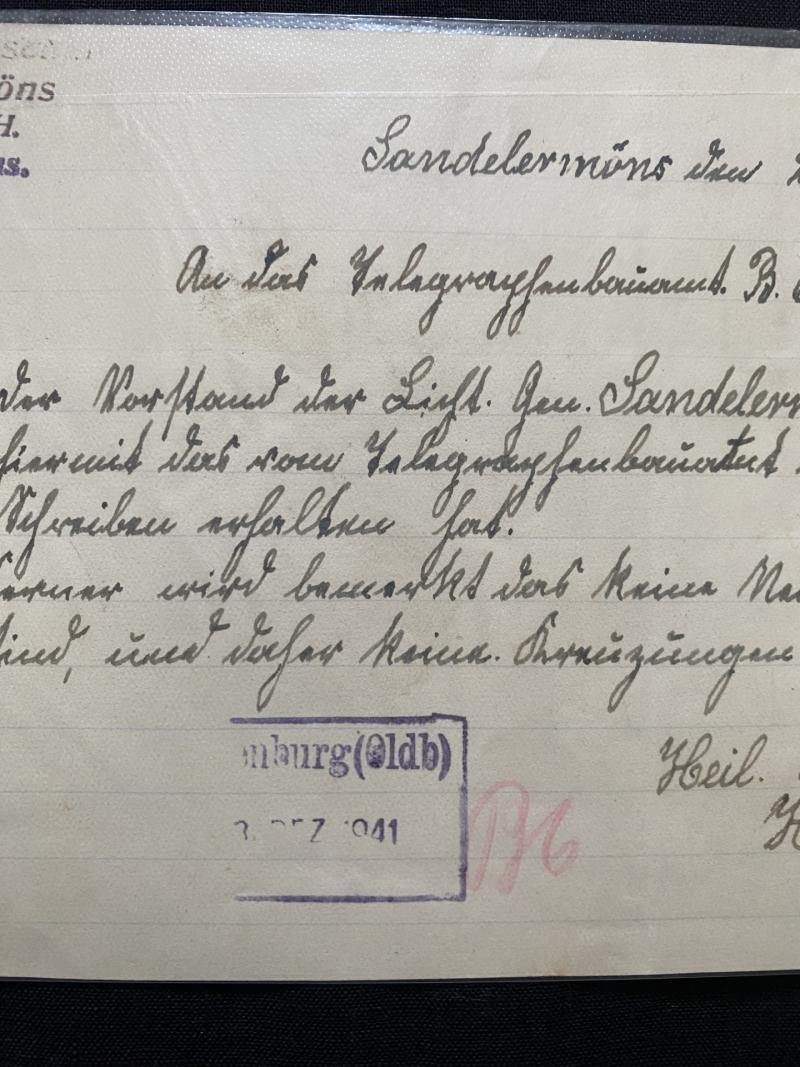 öns
H.
Sandelermöns den
An das Telegraphenbauamt. B.
der Vorstand der Licht. Gen. Sandeler
hiermit das vom Telegraphenbauamt
Schreiben erhalten hat.
erner wird bemerkt das keine
sind, und daher keine. Kreuzungen
nburg (Oldb)
DEZ 1941
Heil.